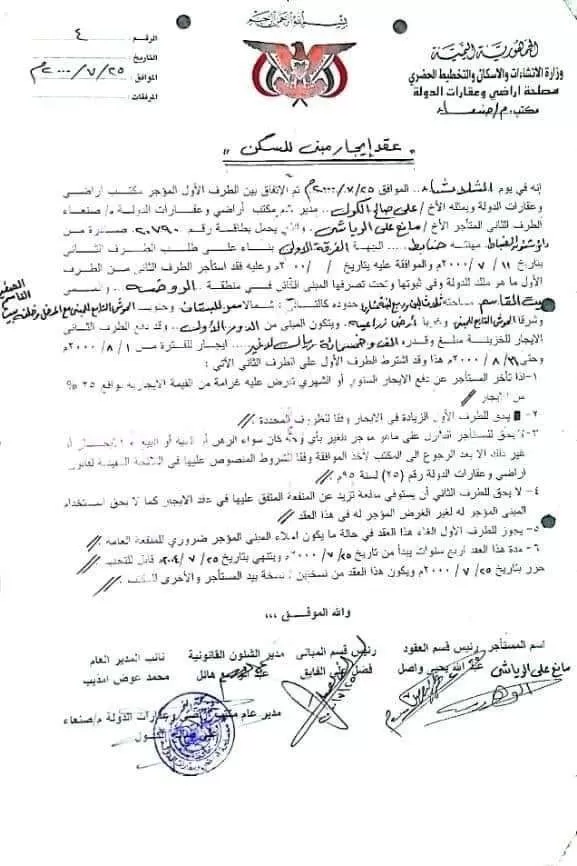 بسم الله الرحمن الرحيم
الجمهورية اليمنية
وزارة الإنشاءات والإسكان والتخطيط الحضري
مصلحة اراضي وعقارات الدولة
مكتب م/صنعاء
الرقم ٤
التاريخ
الموافق ٢٥/٧/٢٠٠٠م
المرفقات
عقد إيجار مبنى للسكن
إنه في يوم الثلاثاء .. الموافق ٢٥/٧/٢٠٠٠م تم الاتفاق بين الطرف الأول المؤجر مكتب اراضي
وعقارات الدولة ويمثله الأخ / علي صالح الكول .. مدير عام مكتب أراضي وعقارات الدولة م/ صنعاء
الطرف الثاني المتأجر الأخ / مانع علي الرياشي .. والذي يحمل بطاقة رقم ٢٠٧٩٠ صادرة من
مهنته ضابط .... الجهة الفرقة الاولى بناء على طلب الطرف الثاني
بتاريخ ١١ / ٧ / ٢٠٠٠م والموافقة عليه بتاريخ / / ٢٠٠٠م وعليه فقد استأجر الطرف الثاني من الطرف
الأول ما هو ملك للدولة وفي ثبوتها وتحت تصرفها المبنى الكائن في منطقة .. الروضه ... والمسمى
بيت القاسم مساحته حدوده كالتالي : شمالا وجنوب
وشرقا الحوش التابع للمبنى وغربا أرض زراعيه . ويتكون المبنى من الدور الأول .. وقد دفع الطرف الثاني
الايجار للخزينة مبلغ وقدره الف وخمسمائة ريال لاغير ... ايجار للفترة من ١ / ٨ / ٢٠٠٠م
وحتى ٣١ / ٨ / ٢٠٠٠م هذا وقد اشترط الطرف الأول على الطرف الثاني الآتي :
١-اذا تأخر المستأجر عن دفع الايجار السنوي أو الشهري تفرض عليه غرامة من القيمة الايجارية بواقع ٢٥ %
من الايجار
٢- يحق للطرف الأول الزيادة في الايجار وفقا للظروف المحددة .
٣- لا يحق للمستأجر التنازل على ماهو مؤجر للغير بأي وجه كان سواء الرهن أو الهبه أو البيع أو الايجار أو
غير ذلك الا بعد الرجوع الى المكتب لأخذ الموافقة وفقا للشروط المنصوص عليها في اللائحة التنفيذية لقانون
اراضي وعقارات الدولة رقم (٢٥) لسنة ٩٥م .
٤- لا يحق للطرف الثاني أن يستوفي منفعة تزيد عن المنفعة المتفق عليها في عقد الايجار كما لا يحق استخدام
المبنى المؤجر له لغير الغرض المؤجر له في هذا العقد
٥- يجوز للطرف الاول الغاء هذا العقد في حالة ما يكون اخلاء المبنى المؤجر ضروري للمنفعة العامه
٦- مدة هذا العقد اربع سنوات يبدأ من تاريخ ٢٥ / ٧ / ٢٠٠٠م وينتهي بتاريخ ٢٥ / ٧ / ٢٠٠٤م قابل للتجديد
حرر بتاريخ ٢٥ / ٧ / ٢٠٠٠م ويكون هذا العقد من نسختين نسخة بيد المستأجر والأخرى للمكتب
والله الموفـــق ،،،
اسم المستأجر رئيس قسم العقود رئيس قسم المباني مدير الشئون القانونية نائب المدير العام
مانع علي الرياشي عبد الله يحيى واصل فضل علي الفايق هائل محمد عوض
مدير عام مكتب اراضي وعقارات الدولة م/صنعاء
علي صالح الكول